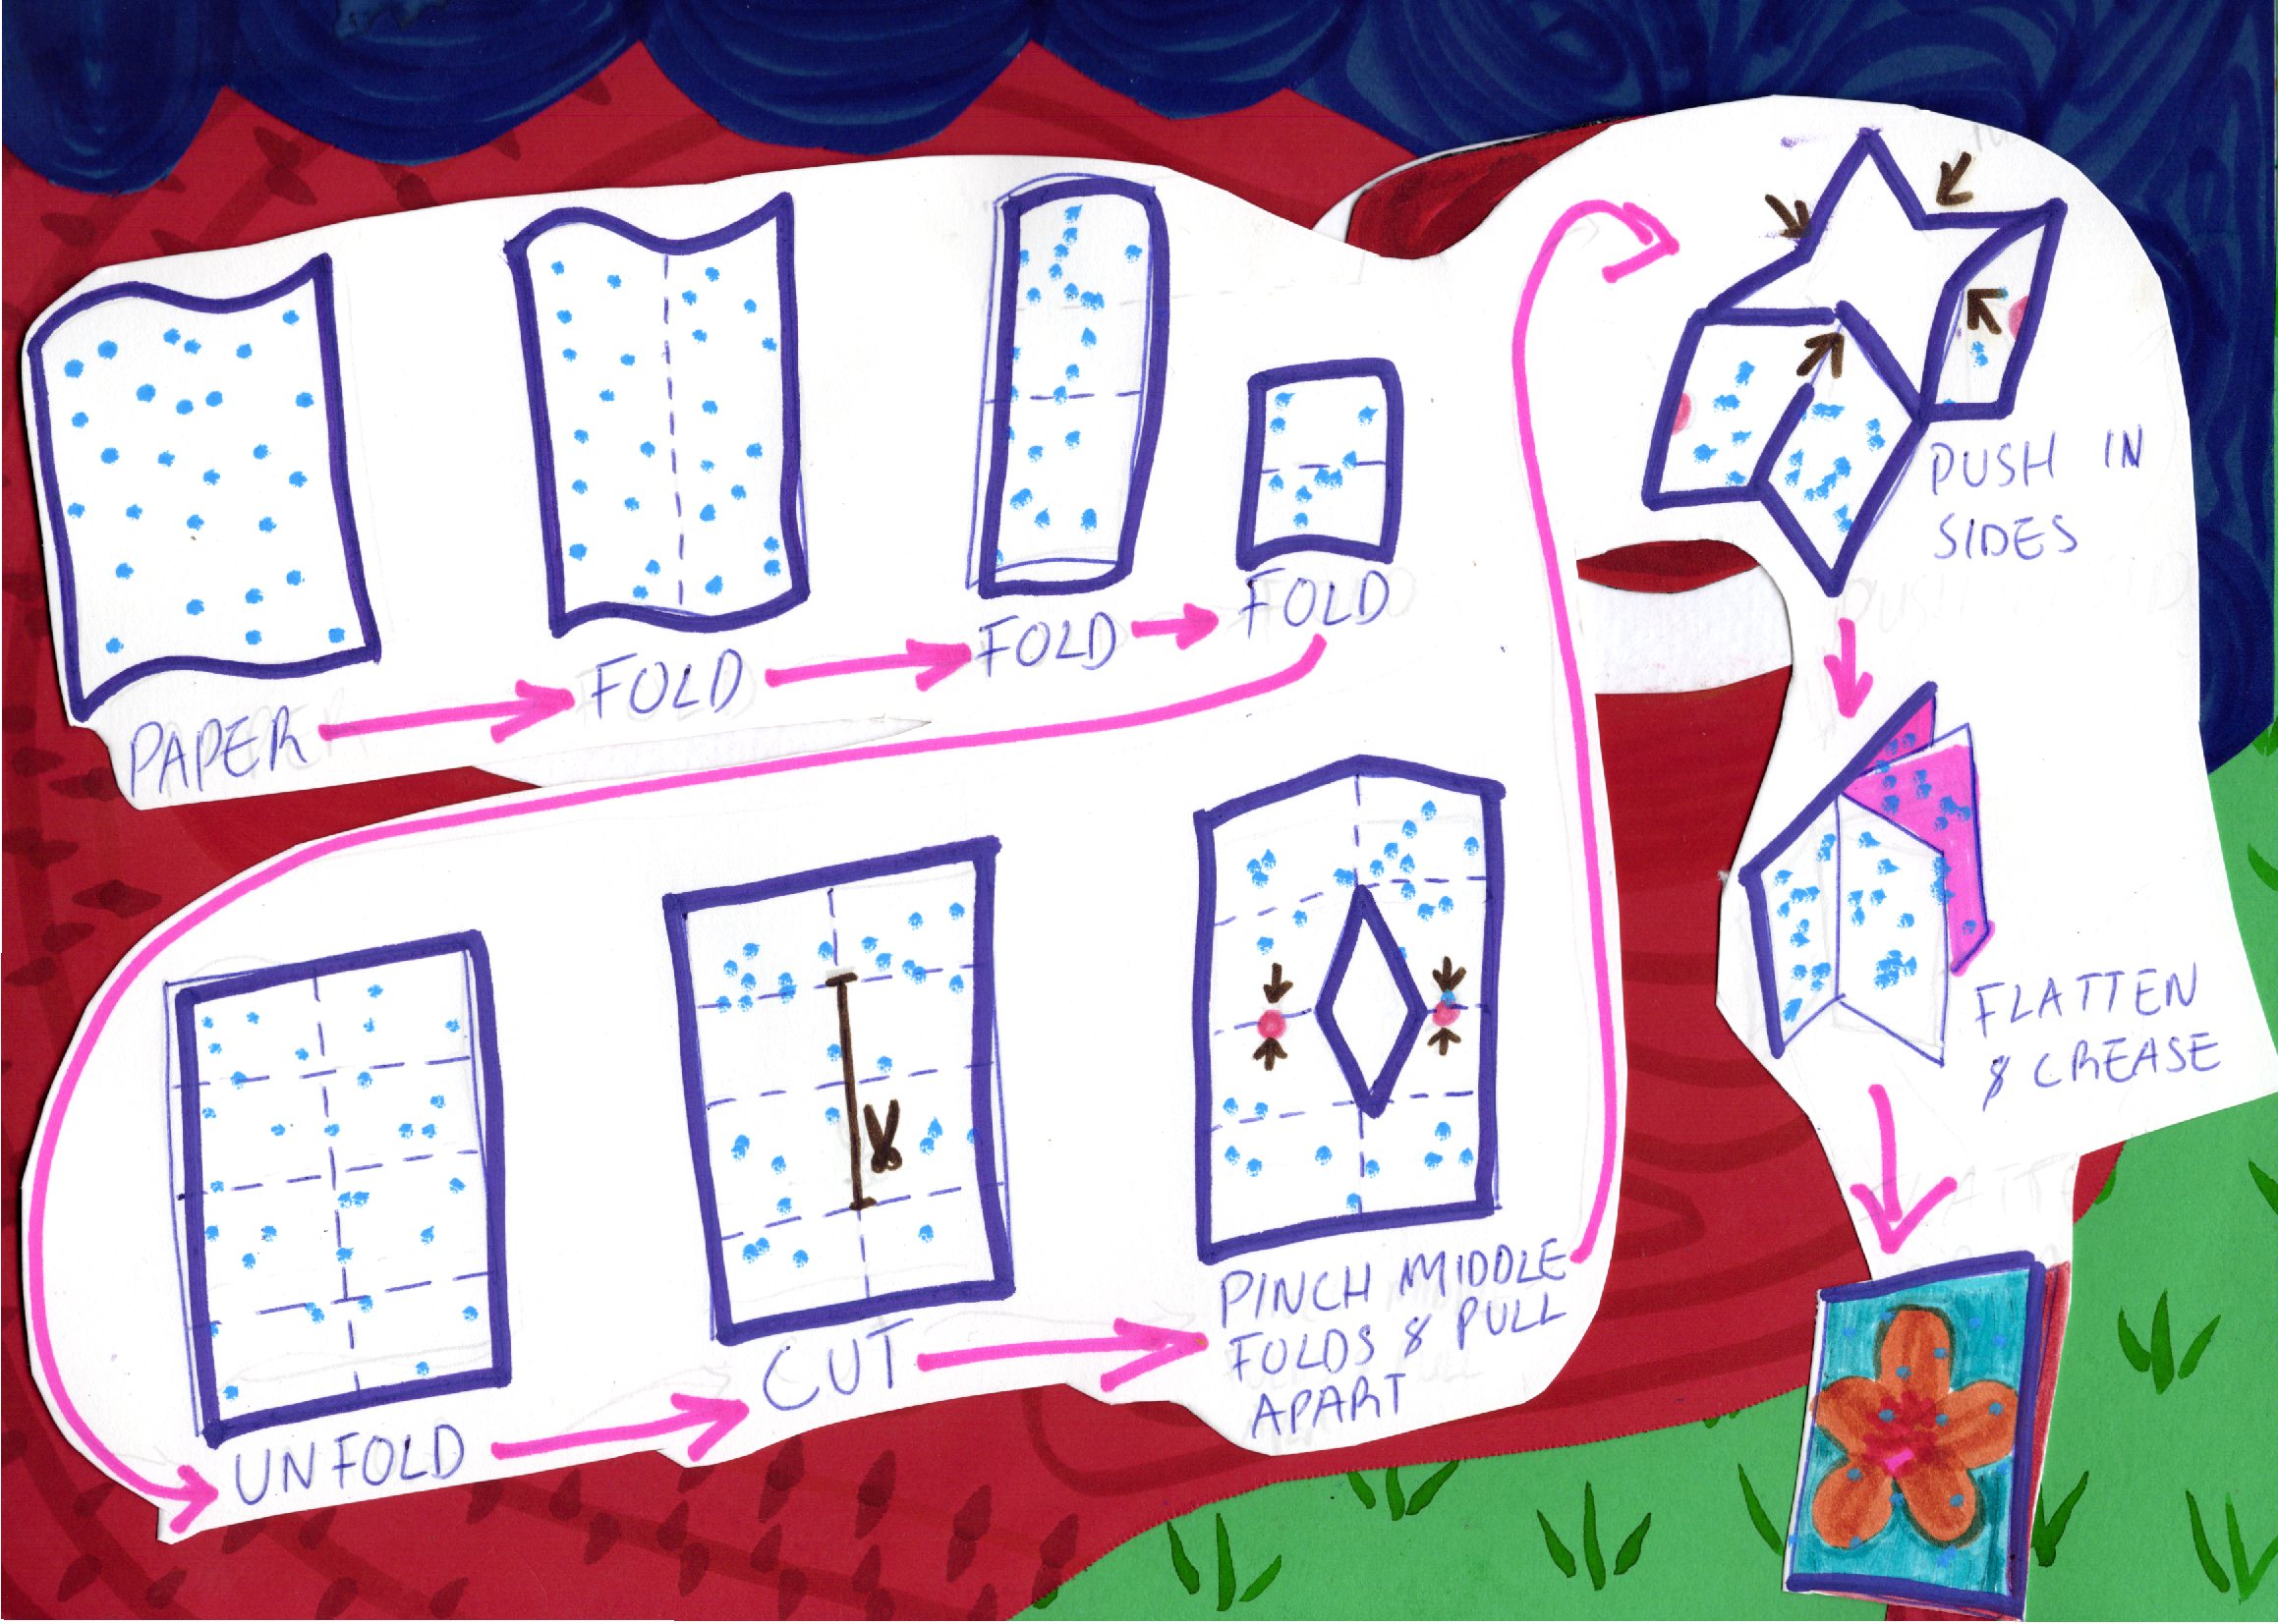 PAPER
FOLD
FOLD
FOLD
UNFOLD
CUT
PINCH MIDDLE
FOLDS & PULL
APART
PUSH IN
SIDES
FLATTEN
& CREASE